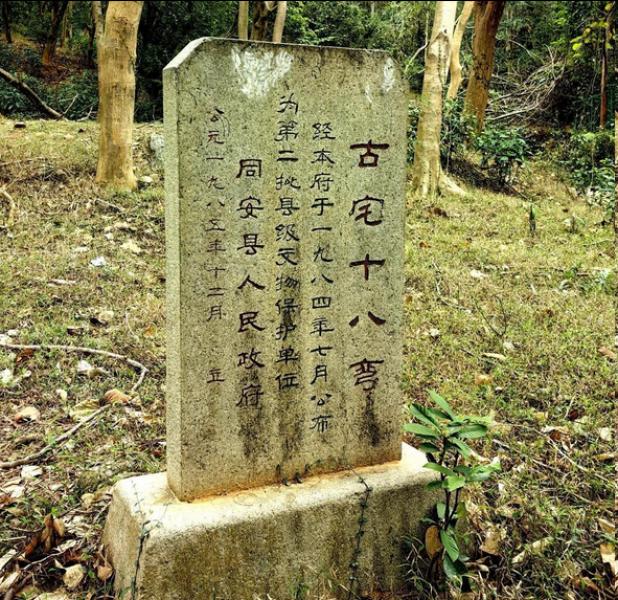 古宅十八弯
经本府于一九八四年七月公布
为第二批县级文物保护单位
同安县人民政府
公元一九八五年十二月 立